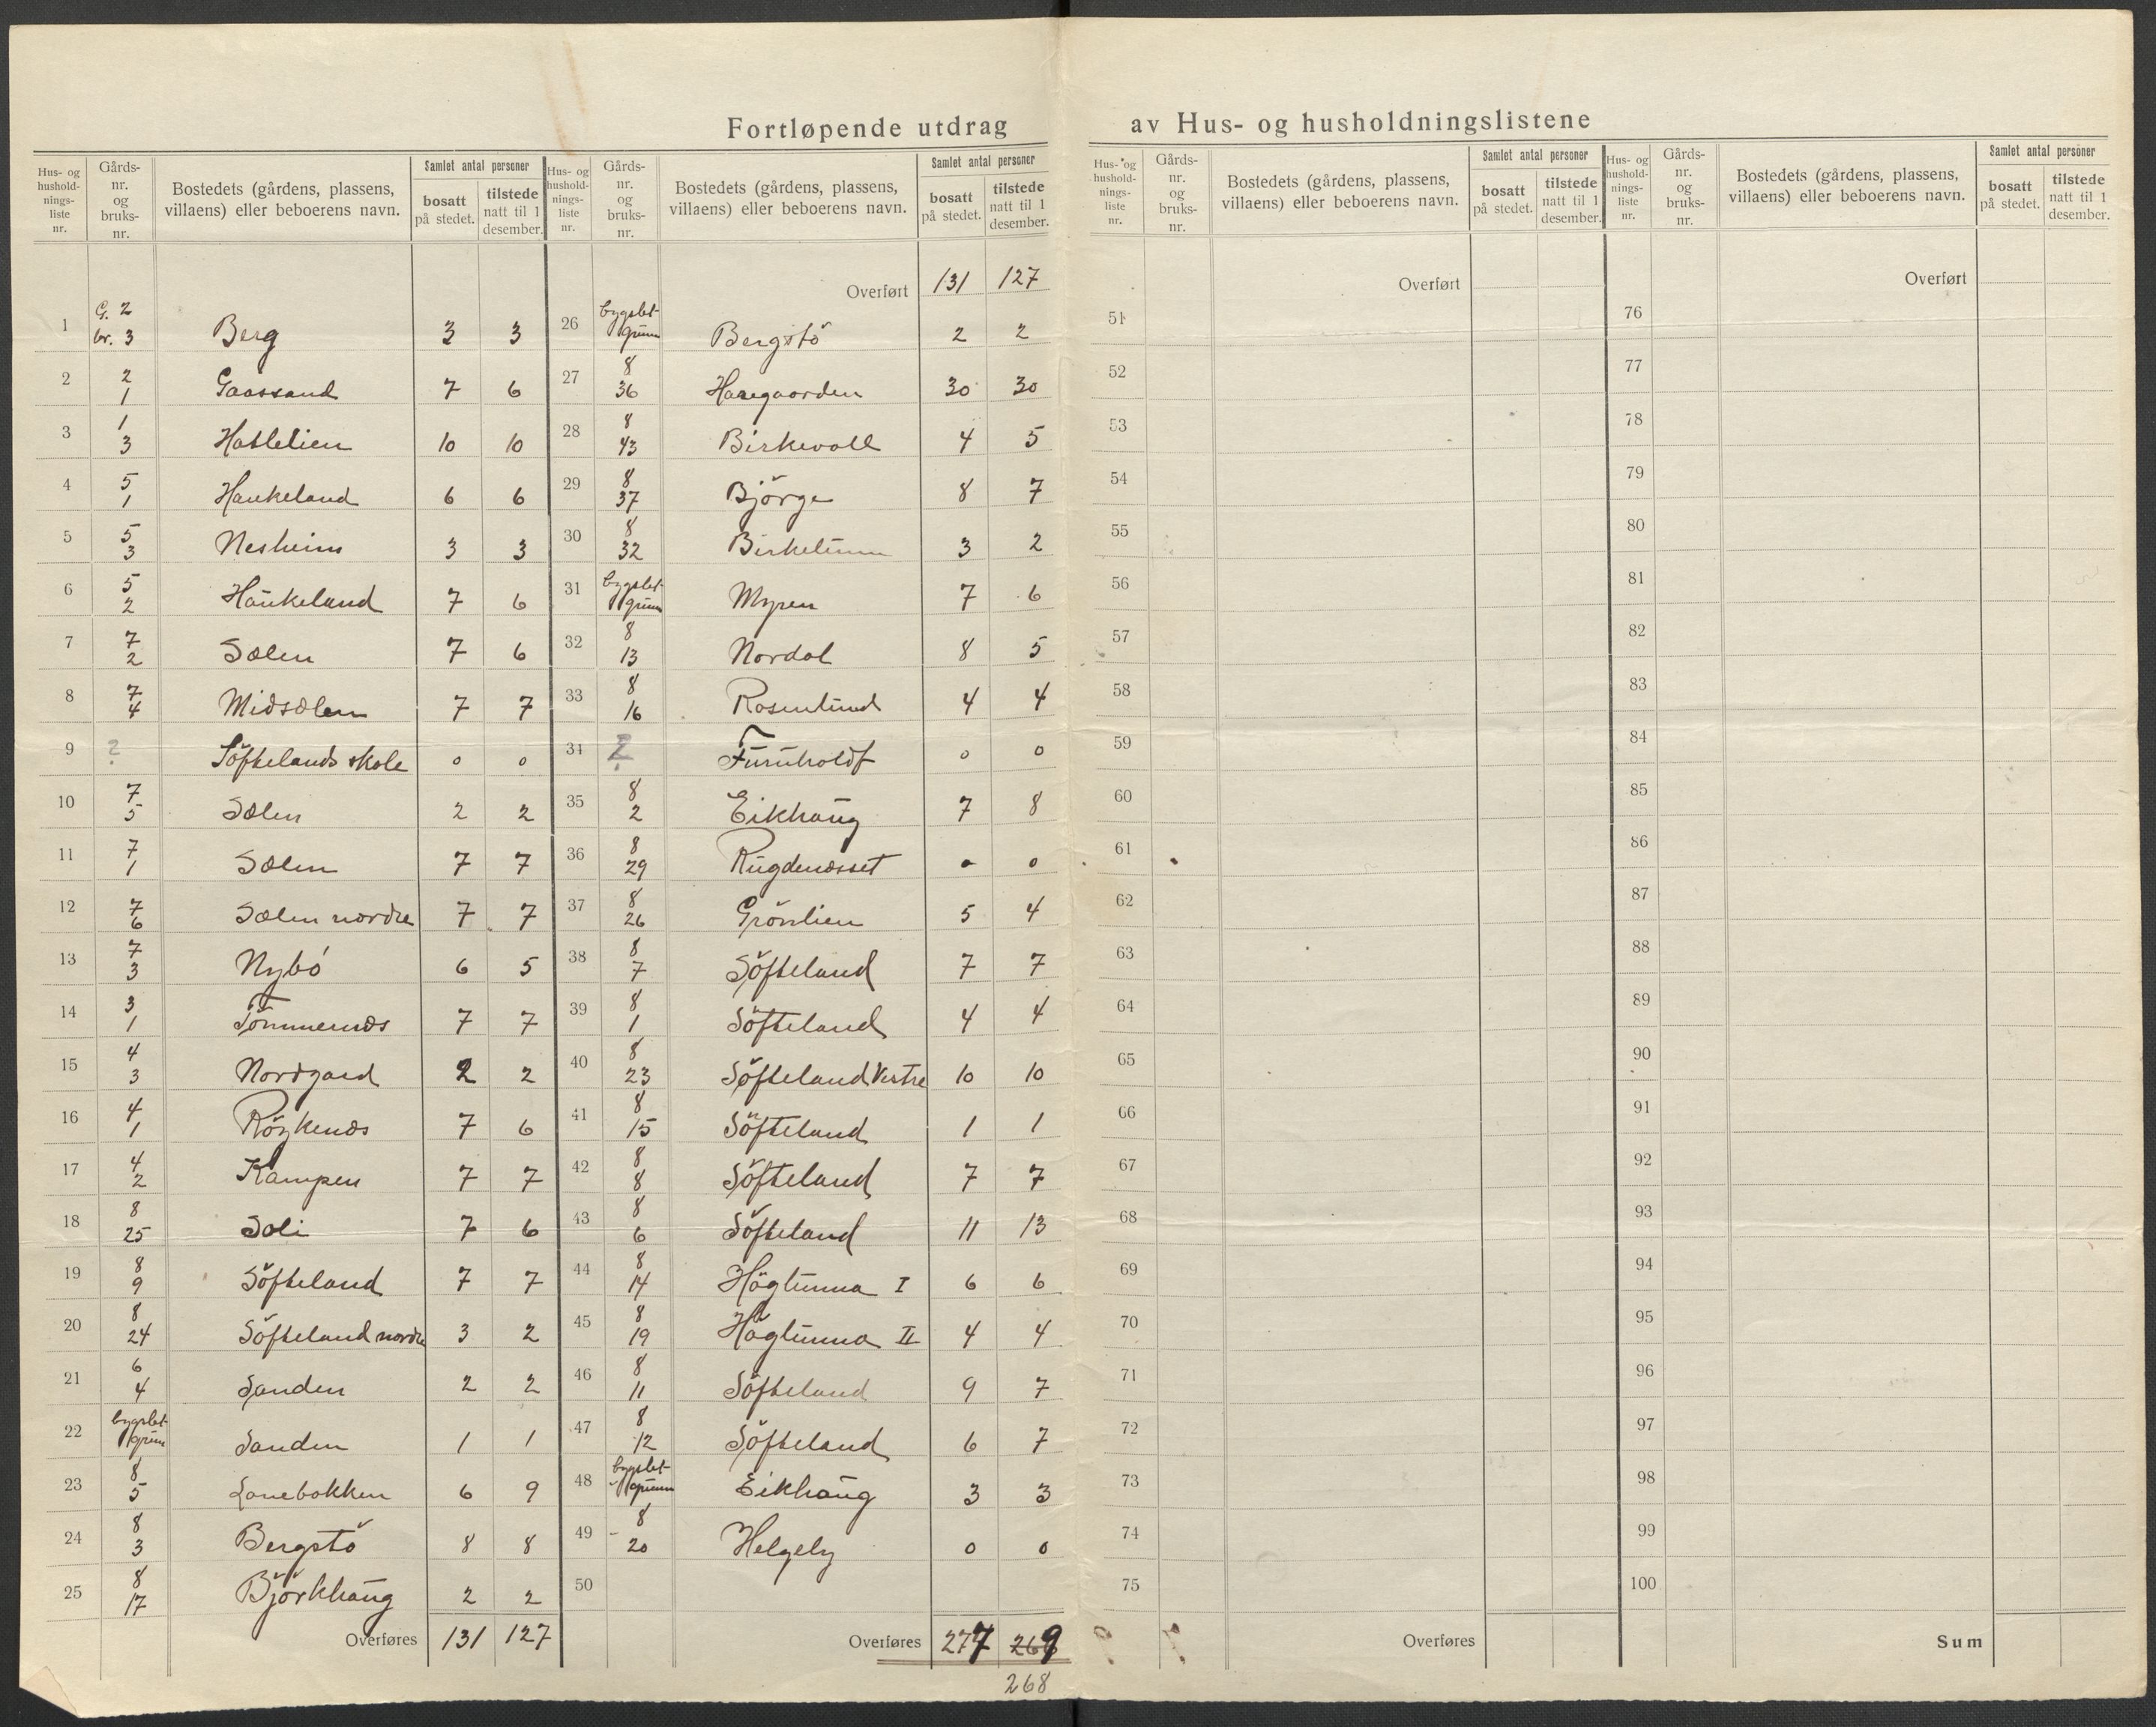 Fortløpende utdrag av Hus- og husholdningslistene
Hus- og hushold-nings-liste nr. | Gårds-nr. og bruks-nr. | Bostedets (gårdens, plassens, villaens) eller beboerens navn. | Samlet antal personer | bosatt på stedet. | tilstede natt til 1 desember.
1 G. 2 br. 3 Berg 3 3
2 2 1 Gaassand 7 6
3 1 3 Hatlelien 10 10
4 5 1 Haukeland 6 6
5 5 3 Nesheim 3 3
6 5 2 Haukeland 7 6
7 7 2 Sælen 7 6
8 7 4 Midsælen 7 7
9 ? Söftelands skole 0 0
10 7 5 Sælen 2 2
11 7 1 Sælen 7 7
12 7 6 Sælen nordre 7 7
13 7 3 Nybö 6 5
14 3 1 Tömmernæs 7 7
15 4 3 Nordgard 2 2
16 4 1 Röykenæs 7 6
17 4 2 Kampen 7 7
18 8 25 Soli 7 6
19 8 9 Söfteland 7 7
20 8 24 Söfteland nordre 3 2
21 6 4 Sanden 2 2
22 bygslet-grunn Sanden 1 1
23 8 5 Lonebakken 6 9
24 8 3 Bergstö 8 8
25 8 17 Björkhaug 2 2
Overføres 131 127
Hus- og hushold-nings-liste nr. | Gårds-nr. og bruks-nr. | Bostedets (gårdens, plassens, villaens) eller beboerens navn. | Samlet antal personer | bosatt på stedet. | tilstede natt til 1 desember.
Overført 131 127
26 bygslet-grunn Bergstö 2 2
27 8 36 Haregaarden 30 30
28 8 43 Birkevoll 4 5
29 8 37 Björge 8 7
30 8 32 Birkelunn 3 2
31 bygslet-grunn Myren 7 6
32 8 13 Nordal 8 5
33 8 16 Rosenlund 4 4
34 ? Furuholdt 0 0
35 8 2 Eikhaug 7 8
36 8 29 Rugdenæsset 0 0
37 8 26 Grönlien 5 4
38 8 7 Söfteland 7 7
39 8 1 Söfteland 4 4
40 8 23 Söfteland Vestre 10 10
41 8 15 Söfteland 1 1
42 8 8 Söfteland 7 7
43 8 6 Söfteland 11 13
44 8 14 Höglunna I 6 6
45 8 19 Höglunna II 4 4
46 8 11 Söfteland 9 7
47 8 12 Söfteland 6 7
48 bygslet-grunn Eikhaug 3 3
49 8 20 Helgeby 0 0
50
Overføres 277 269
268
Hus- og hushold-nings-liste nr. | Gårds-nr. og bruks-nr. | Bostedets (gårdens, plassens, villaens) eller beboerens navn. | Samlet antal personer | bosatt på stedet. | tilstede natt til 1 desember.
Overført
51
52
53
54
55
56
57
58
59
60
61
62
63
64
65
66
67
68
69
70
71
72
73
74
75
Overføres
Hus- og hushold-nings-liste nr. | Gårds-nr. og bruks-nr. | Bostedets (gårdens, plassens, villaens) eller beboerens navn. | Samlet antal personer | bosatt på stedet. | tilstede natt til 1 desember.
Overført
76
77
78
79
80
81
82
83
84
85
86
87
88
89
90
91
92
93
94
95
96
97
98
99
100
Sum